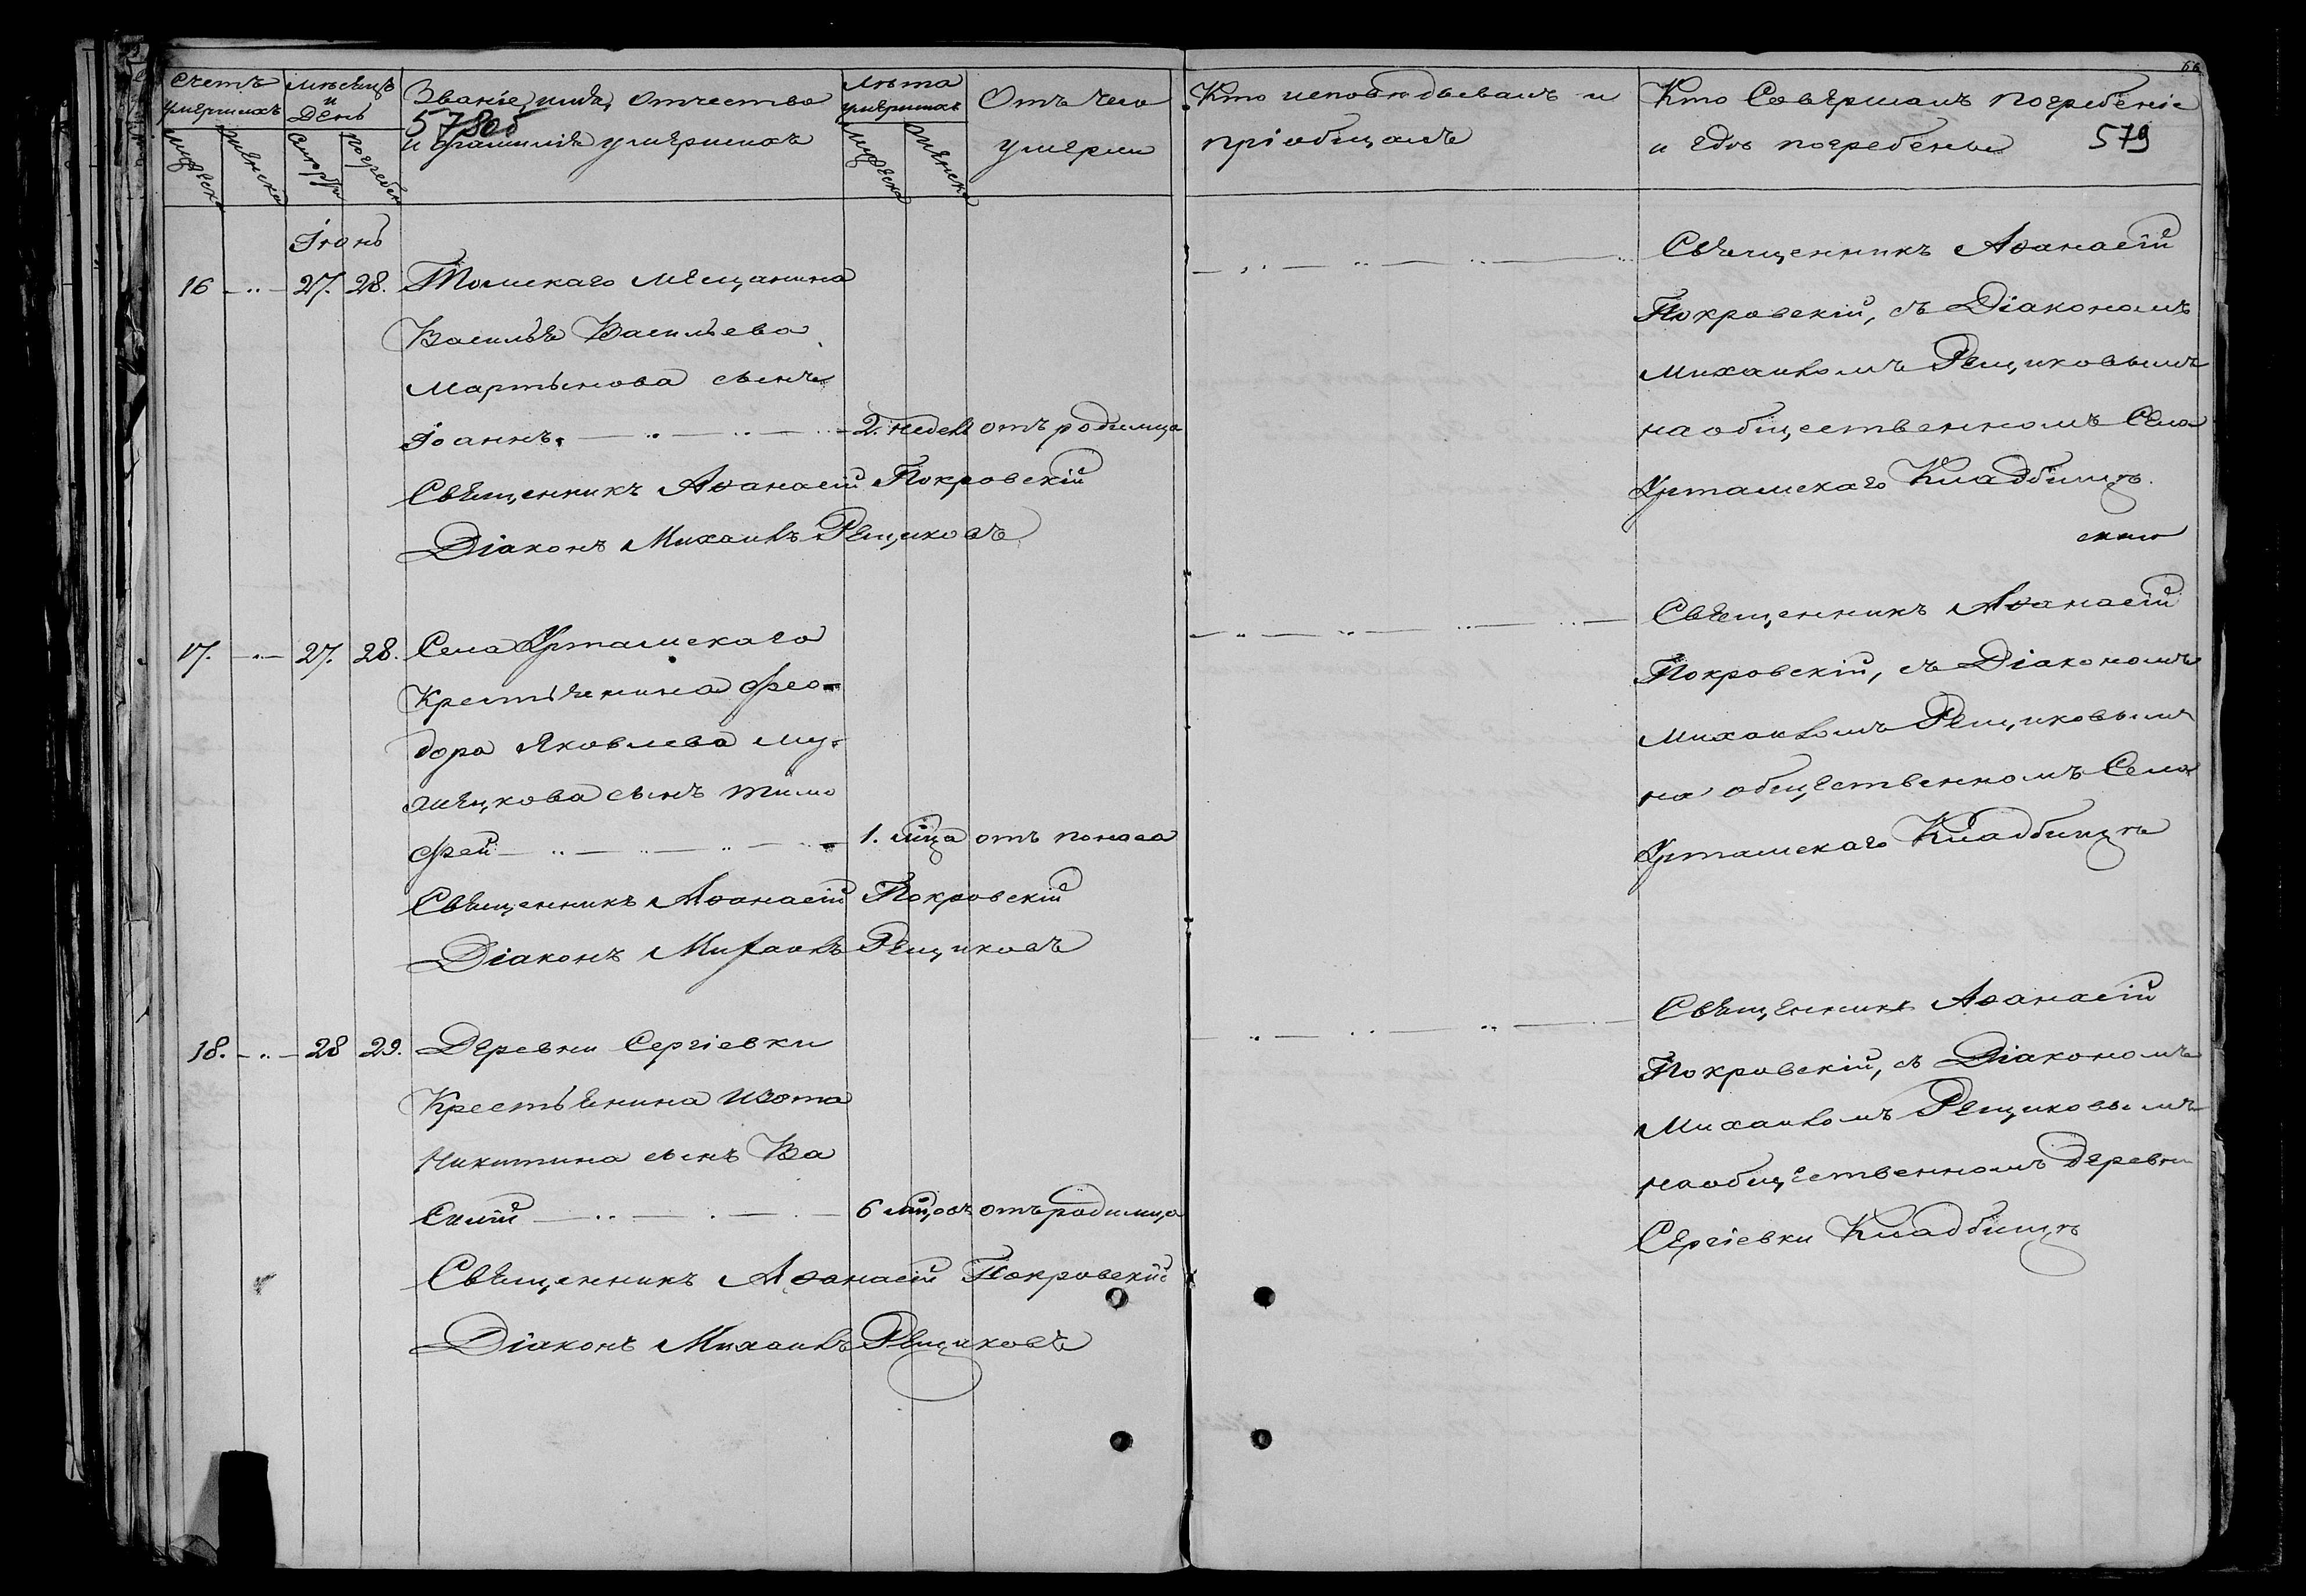 Счетъ умершихъ
Мужеска
Женска
Мѣсяцъ и День
Смерти
Погребен
Званіе, имя, отчество
578об
и фамилія умершихъ
Лѣта умершихъ
Мужеска
Женска
Отъ чего
умерли
Кто исповѣдывалъ и
пріобщалъ
Кто Совершалъ погребеніе
и гдѣ погребены
579
Іюнь
16 27. 28. Томскаго мещанина
Василья Васильева
Мартынова сынъ
Іоаннъ. 2. недел отъ родимца
Священникъ Аѳанасій Покровскій
Діаконъ Михаилъ Рещиковъ
Священникъ Аѳанасій
Покровскій, съ Діакономъ
Михаиломъ Рещиковымъ
на общественномъ Села
Уртамскаго Кладбищѣ.
17. 27. 28. Села Уртамскаго
Крестьянина Фео-
дора Яковлева
сынъ Тимо
фей 1. мца отъ поноса
Священникъ Аѳанасій Покровскій
Діаконъ Михаилъ Рещиковъ
Священникъ Аѳанасій
Покровскій, съ Діакономъ
Михаиломъ Рещиковымъ
на общественномъ Села
Уртамскаго Кладбищѣ
18. 28 29. Деревни Сергіевки
Крестьянина Изота
Никитина сынъ Ва
силій 6 мцовъ отъ родимца
Священникъ Аѳанасій Покровскій
Діаконъ Михаилъ Рещиковъ
Священникъ Аѳанасій
Покровскій, съ Діакономъ
Михаиломъ Рещиковымъ
на общественномъ Деревни
Сергіевки Кладбищѣ